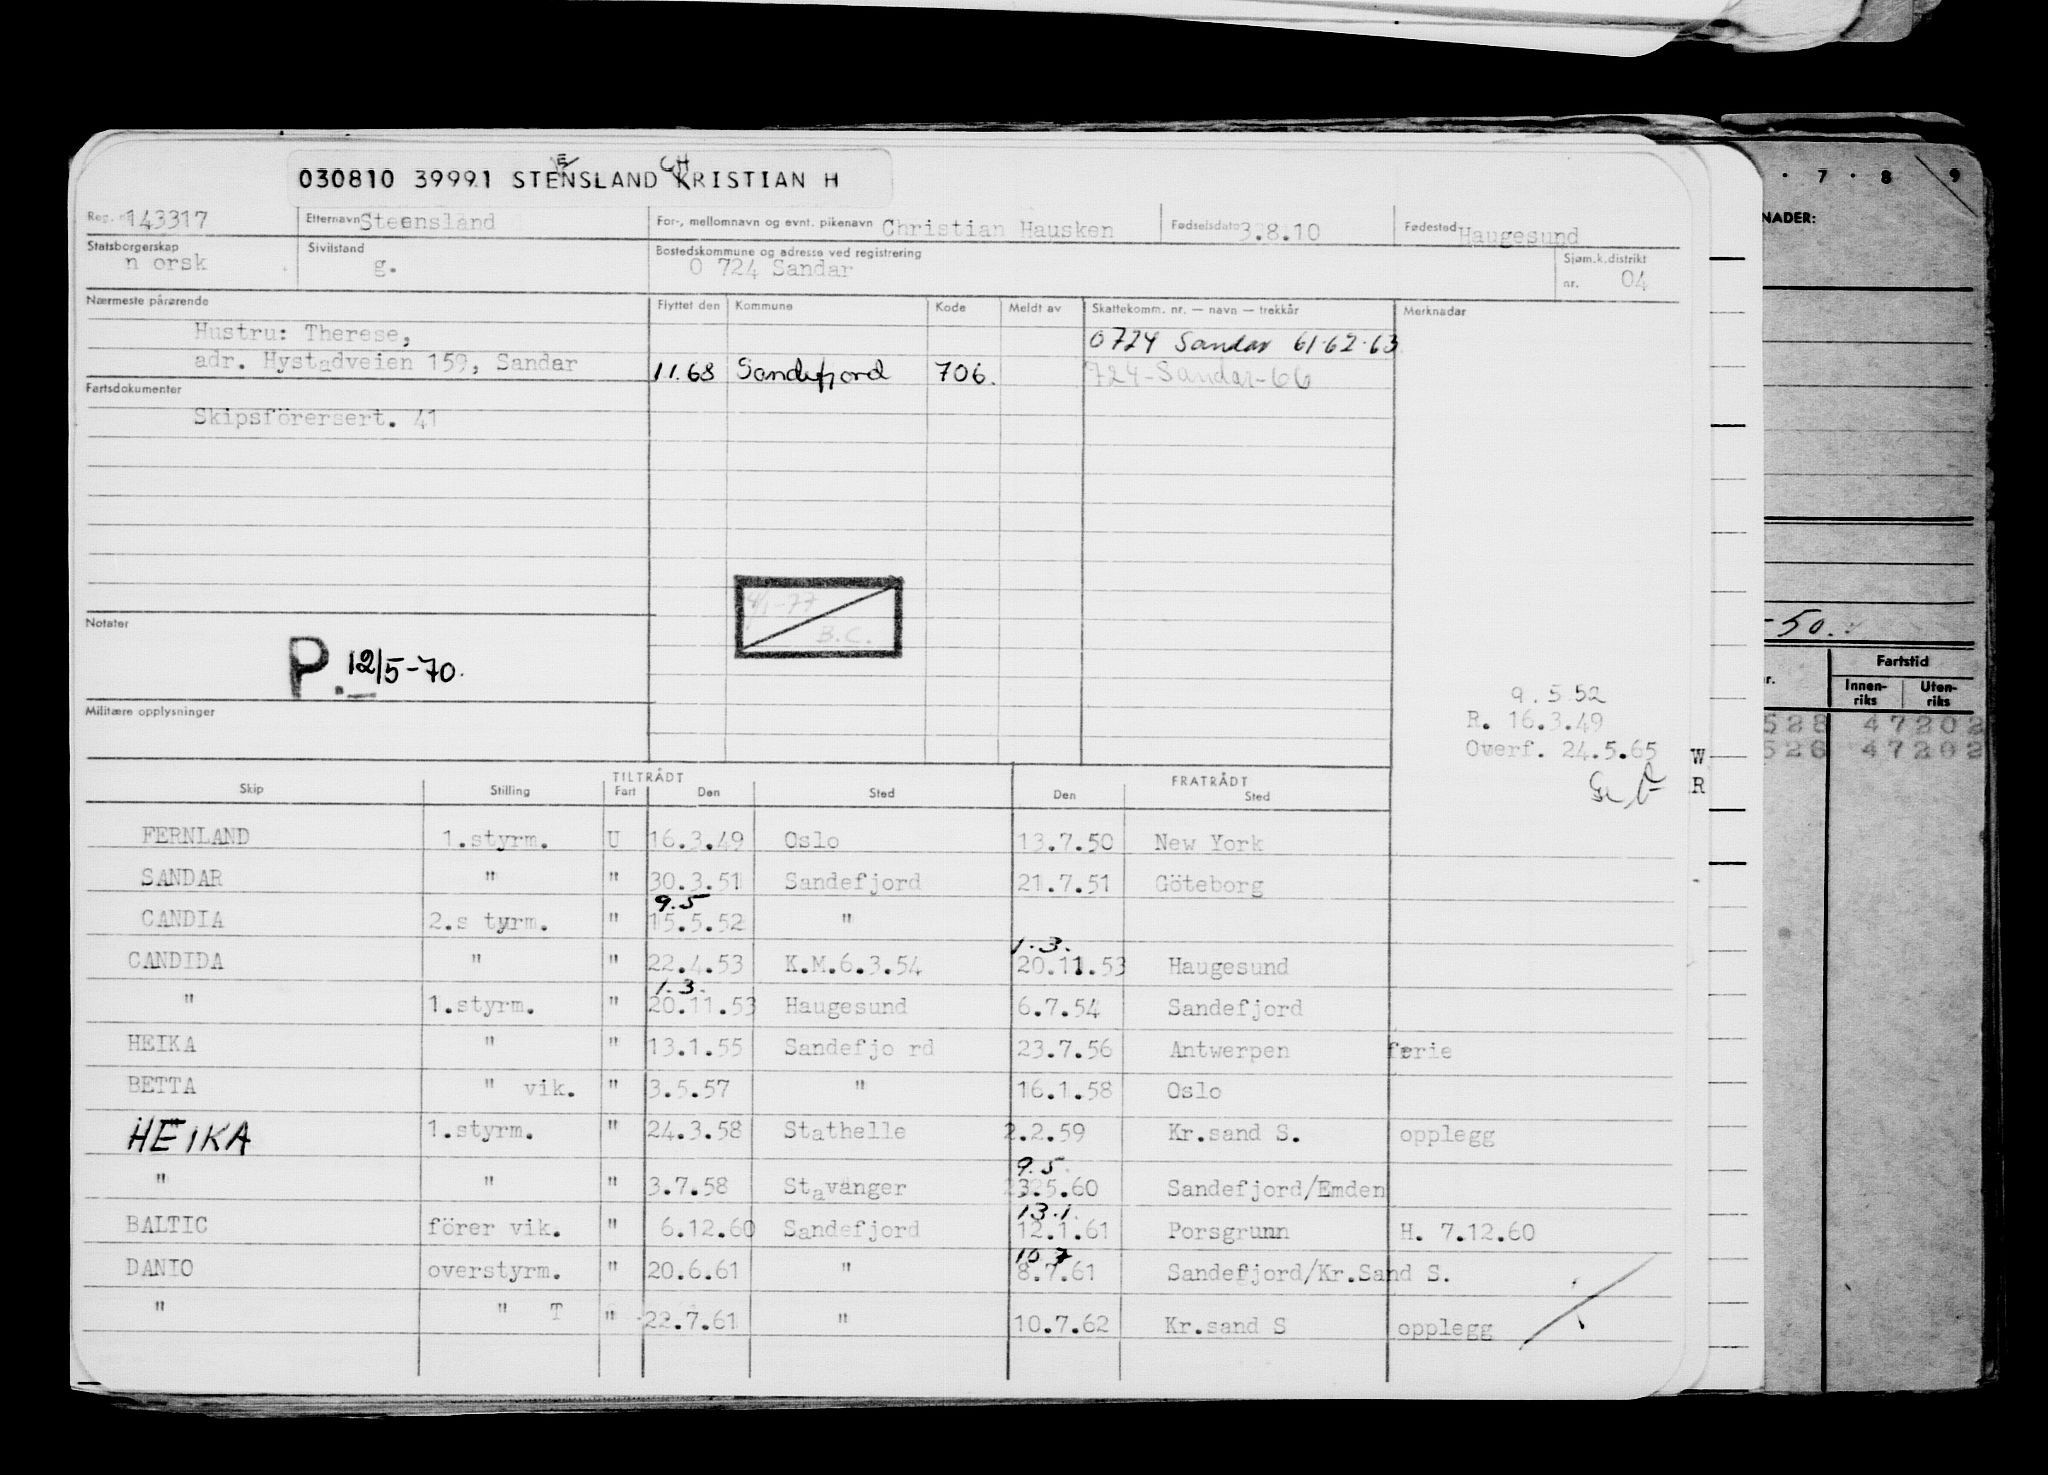 030810 39991 STENSLAND KRISTIAN H
E CH
Reg. nr. 143317 Etternavn Steensland For-, mellomnavn og evnt. pikenavn Christian Hausken Fødselsdato 3.8.10 Fødested Haugesund
Statsborgerskap n orsk Sivilstand g. Bostedskommune og adresse ved registrering 0 724 Sandar Sjøm.k.distrikt nr. 04
Nærmeste pårørende Flyttet den Kommune Kode Meldt av Skattekomm. nr. — navn — trekkår Merknader
Hustru: Therese, 0724 Sandar 61-62-63
adr. Hystadveien 159, Sandar 11.68 Sandefjord 706. 724-Sandar-66
Fartsdokumenter
Skipsförersert. 41
4/1-77
B.C.
Notater
P. 12/5-70.
Militære opplysninger
9.5 52
R. 16.3.49
Overf. 24.5.65
TILTRÅDT FRATRÅDT
Skip Stilling Fart Den Sted Den Sted
FERNLAND 1.styrm. U 16.3.49 Oslo 13.7.50 New York
SANDAR " " 30.3.51 Sandefjord 21.7.51 Göteborg
9.5
CANDIA 2.s tyrm. " 15.5.52 "
1.3.
CANDIDA " " 22.4.53 K.M.6.3.54 20.11.53 Haugesund
1.3.
" 1.styrm. " 20.11.53 Haugesund 6.7.54 Sandefjord
HEIKA " " 13.1.55 Sandefjo rd 23.7.56 Antwerpen ferie
BETTA " vik. " 3.5.57 " 16.1.58 Oslo
HEIKA 1.styrm. " 24.3.58 Stathelle 2.2.59 Kr.sand S. opplegg
9.5.
" " " 3.7.58 Stavanger 23.5.60 Sandefjord/Emden
13.1.
BALTIC förer vik. " 6.12.60 Sandefjord 12.1.61 Porsgrunn H. 7.12.60
10.7
DANIO overstyrm. " 20.6.61 " 8.7.61 Sandefjord/Kr.Sand S.
" " T " 22.7.61 " 10.7.62 Kr.sand S opplegg
W
R
. 7 . 8 9
NADER:
-50.
Fartstid
Innen-riks Uten-riks
528 47202
526 47202